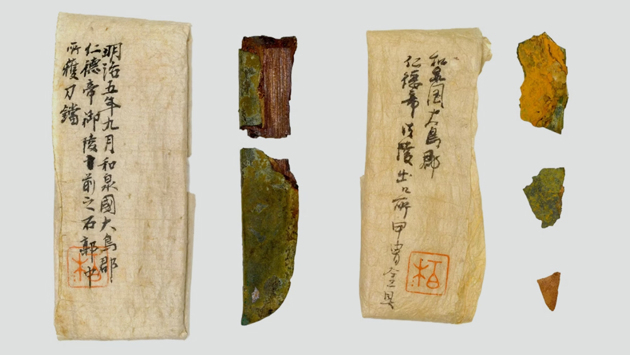 明治五年九月和泉國大鳥郡
仁德帝御陵前之石郭中
所獲刀鐺
栢
和泉国大鳥郡
仁德帝御陵出所甲冑金具
栢